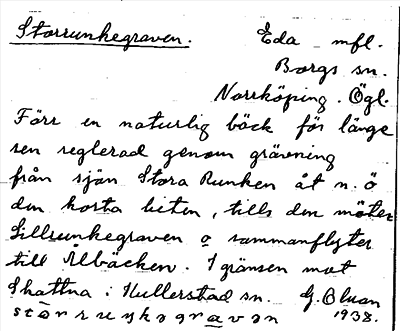 Storrunkegraven. Eda mfl.
Borgs sn.
Norrköping. Ögl.
Förr en naturlig bäck för länge
sen reglerad genom grävning
från sjön Stora Runken åt n. ö
den korta biten, tills den möter
Lillrunkegraven o sammanflyter
till Ålbäcken. I gränsen mot
Skattna i Kullerstad sn. G. Bluan
stòrruŋkəgravən 1938.